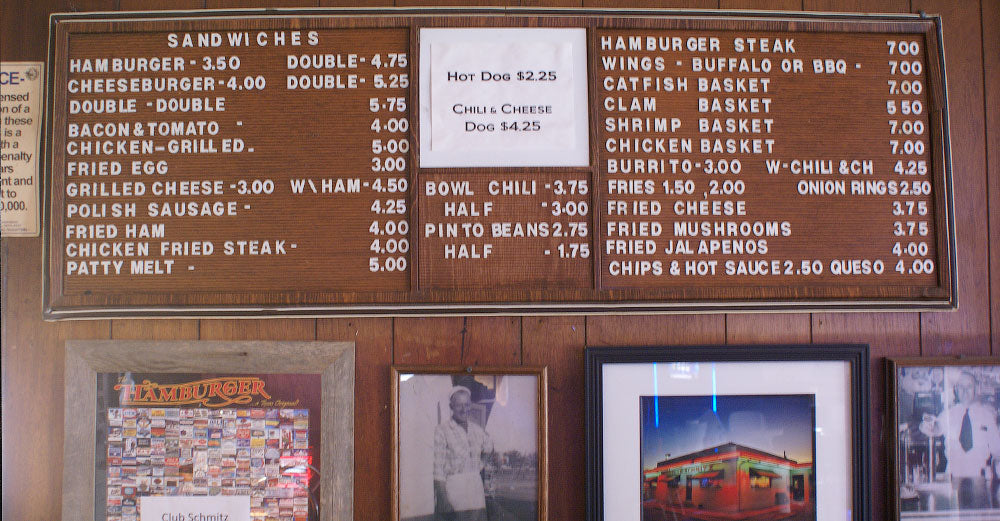 SANDWICHES
HAMBURGER - 3.50 DOUBLE - 4.75
CHEESEBURGER - 4.00 DOUBLE - 5.25
DOUBLE - DOUBLE 5.75
BACON & TOMATO - 4.00
CHICKEN - GRILLED - 5.00
FRIED EGG 3.00
GRILLED CHEESE - 3.00 W\HAM - 4.50
POLISH SAUSAGE - 4.25
FRIED HAM 4.00
CHICKEN FRIED STEAK - 4.00
PATTY MELT - 5.00
HOT DOG $2.25
CHILI & CHEESE
DOG $4.25
BOWL CHILI - 3.75
HALF - 3.00
PINTO BEANS 2.75
HALF - 1.75
HAMBURGER STEAK 700
WINGS - BUFFALO OR BBQ - 700
CATFISH BASKET 7.00
CLAM BASKET 5 50
SHRIMP BASKET 7.00
CHICKEN BASKET 7.00
BURRITO - 3.00 W-CHILI & CH 4.25
FRIES 1.50 , 2.00 ONION RINGS 2.50
FRIED CHEESE 3.75
FRIED MUSHROOMS 3.75
FRIED JALAPENOS 4.00
CHIPS & HOT SAUCE 2.50 QUESO 4.00
CE-
ensed
on of a
these
is a
th a
enalty
ars
nt and
t to
0,000.
THE HAMBURGER
a Texas Original!
Club Schmitz